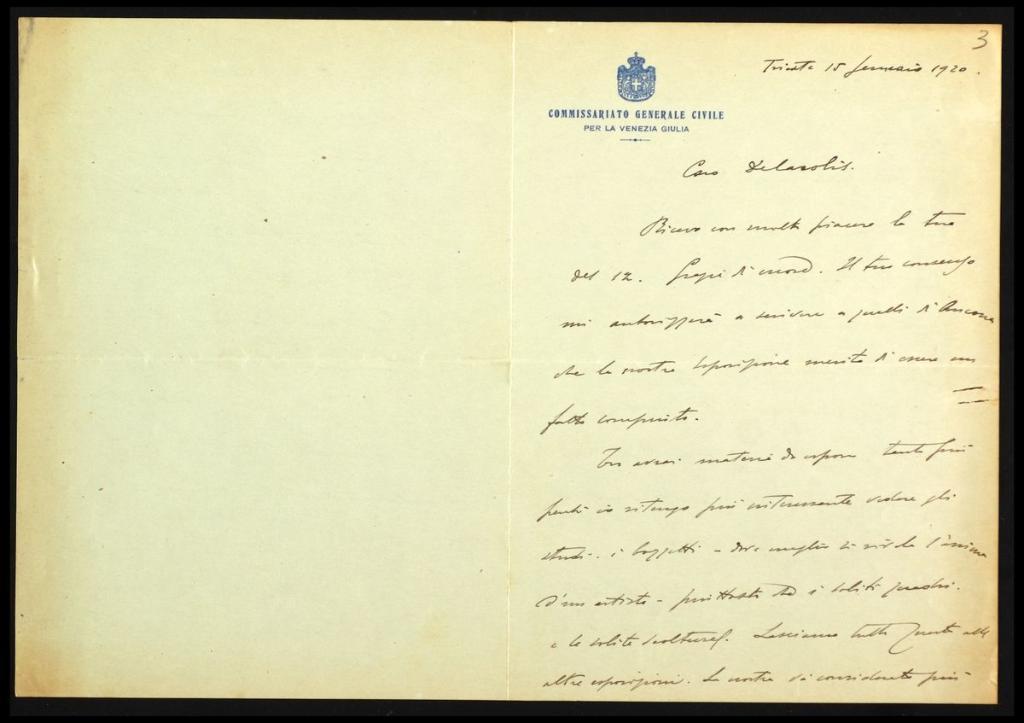 3
Trieste 15 Gennaio 1920.
COMMISSARIATO GENERALE CIVILE
PER LA VENEZIA GIULIA
Caro
Ricevo con molto piacere la tua
del 12. Grazie di cuore. Il tuo consenso
mi autorizzerà a scrivere a quelli di Ancona
che la nostra Esposizione merita di essere un
fatto compiuto.
Tu avrai materia da esporre tanto più
perché io ritengo più interessante vedere gli
studi. i bozzetti - dove meglio si rivela l'anima
d'un artista - piuttosto che i soliti quadri.
e le solite Lasciamo tutto questo alle
altre esposizioni. La nostra va considerata più